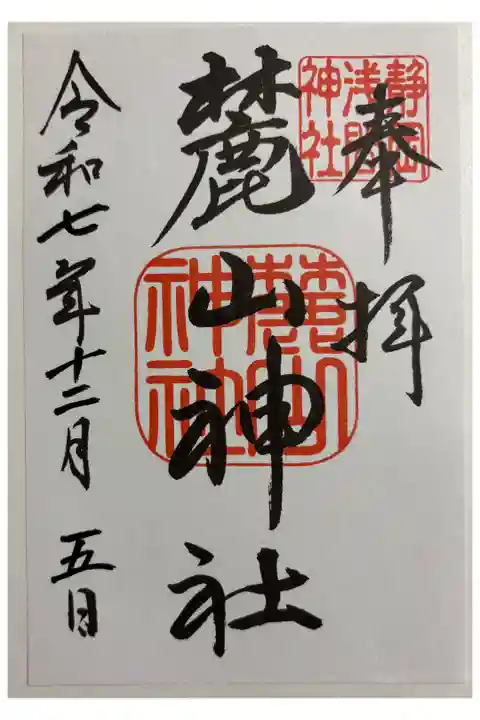 奉拝
静岡
浅間
神社
麓山神社
麓山
神社
令和七年十二月 五日